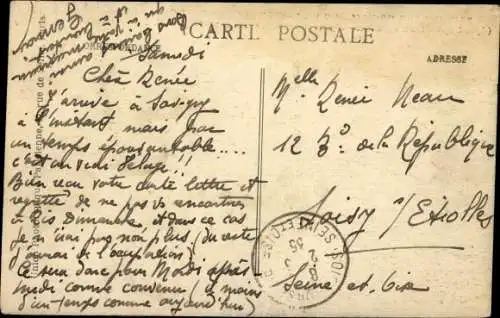 CARTE POSTALE
CORRESPONDANCE
ADRESSE
Samedi
Chère Renée
J'arrive à Savigny
à l'instant mais par
un temps épouvantable....
c'est un vrai déluge!!
Bien reçu votre carte lettre et
regrette de ne pas vs rencontrer
à Ris Dimanche, et dans ce cas
je n'irai pas non plus (du reste
j'aurai de l'occupation)
Ce sera donc pour Mardi après
midi comme convenu (à moins
d'un temps comme aujourd'hui)
Melle Renée Neau
12 Bd de la République
Soisy s/Etiolles
Seine et Oise
SEINE ET OISE